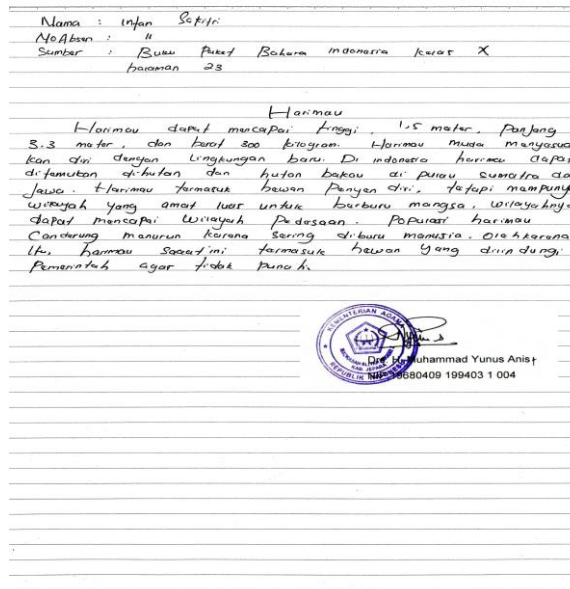 Nama : Intan Safitri
No Absen : 11
Sumber : Buku Paket Bahasa indonesia kelas X
halaman 23
Harimau
Harimau dapat mencapai tinggi 1,5 meter, panjang
3.3 meter, dan berat 300 kilogram. Harimau mudah menyesuai
kan diri dengan Lingkungan baru. Di indonesia harimau dapat
ditemukan di hutan dan hutan bakau di pulau sumatra da
Jawa. Harimau termasuk hewan Penyendiri, tetapi mampuny
wilayah yang amat luas untuk berburu mangsa. wilayahnya
dapat mencapai wilayah Pedesaan. Populasi harimau
Cenderung menurun karena sering diburu manusia. Oleh karena
itu, harimau saaat ini termasuk hewan yang dilindungi
Pemerintah agar tidak punah.
KEMENTERIAN AGAMA
KAB. JEPARA
REPUBLIK
Drs. H. Muhammad Yunus Anis
NIP. 19680409 199403 1 004